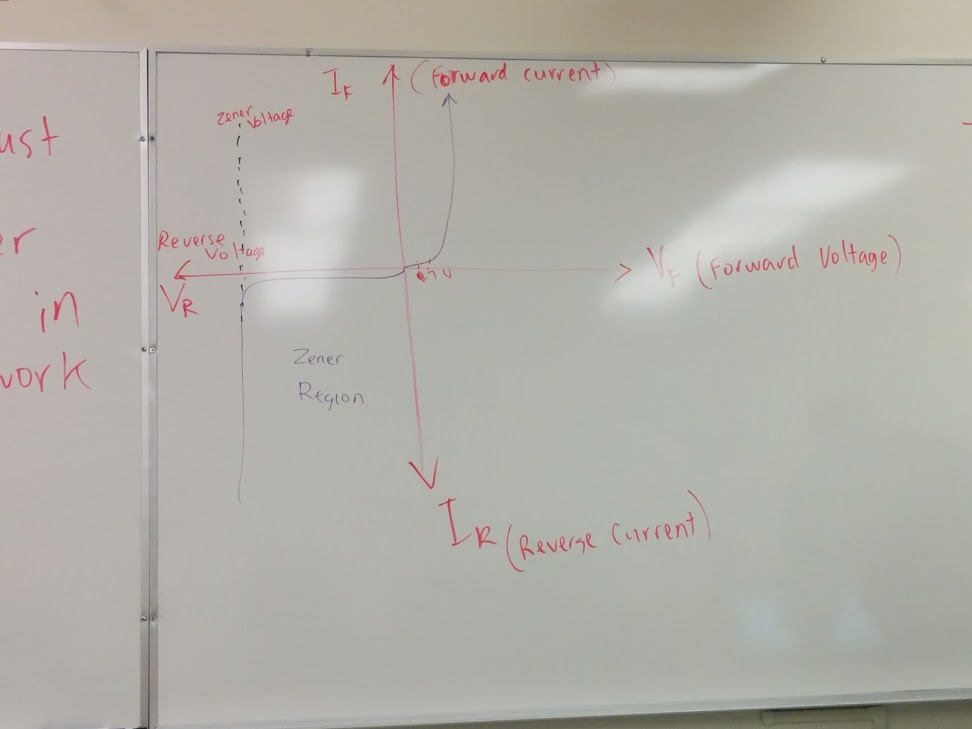 ust
er
in
work
I_F (Forward current)
Zener
Voltage
Reverse
Voltage
V_R
0.7 V
V_F (Forward Voltage)
Zener
Region
I_R (Reverse Current)